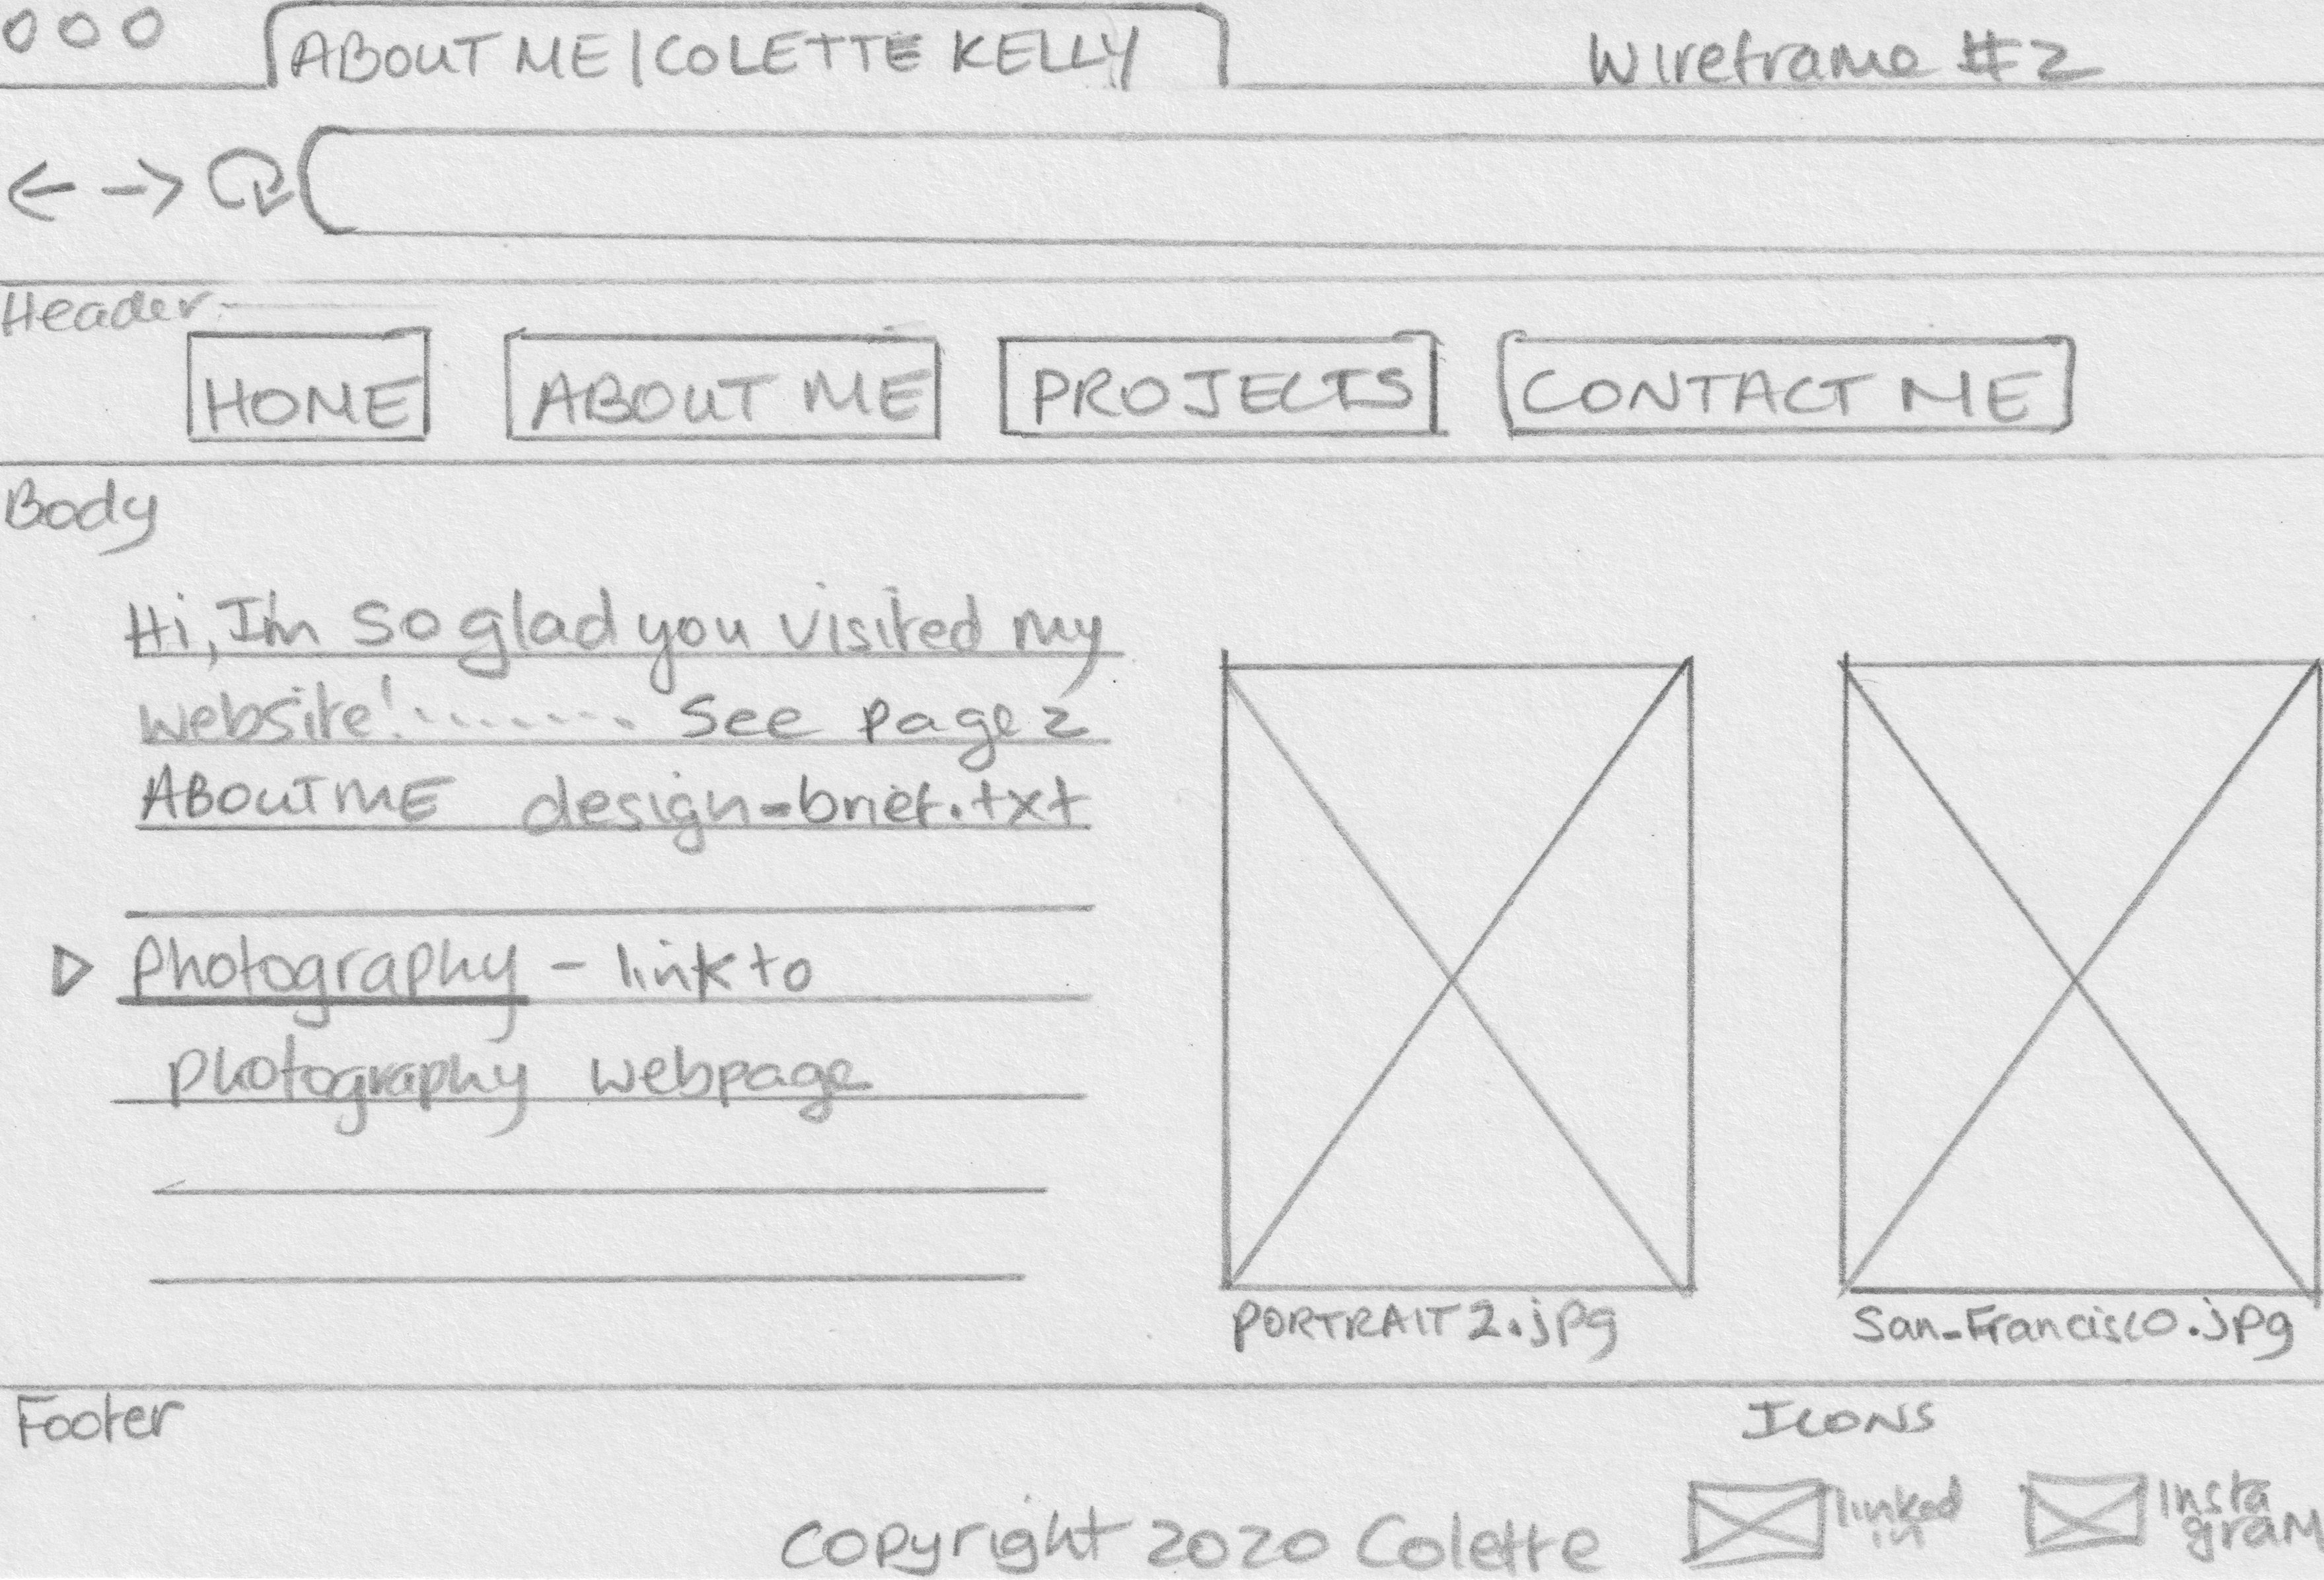 ABOUT ME | COLETTE KELLY
Wireframe #2
Header
HOME
ABOUT ME
PROJECTS
CONTACT ME
Body
Hi, I'm so glad you visited my
website!......... See page 2
ABOUT ME design-brief.txt
Photography - link to
photography webpage
PORTRAIT 2.jpg
San-Francisco.jpg
Footer
ICONS
linked
in
insta
gram
Copyright 2020 Colette